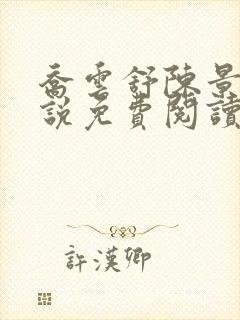 喬雲舒陳景
說免費閱讀
許漢卿